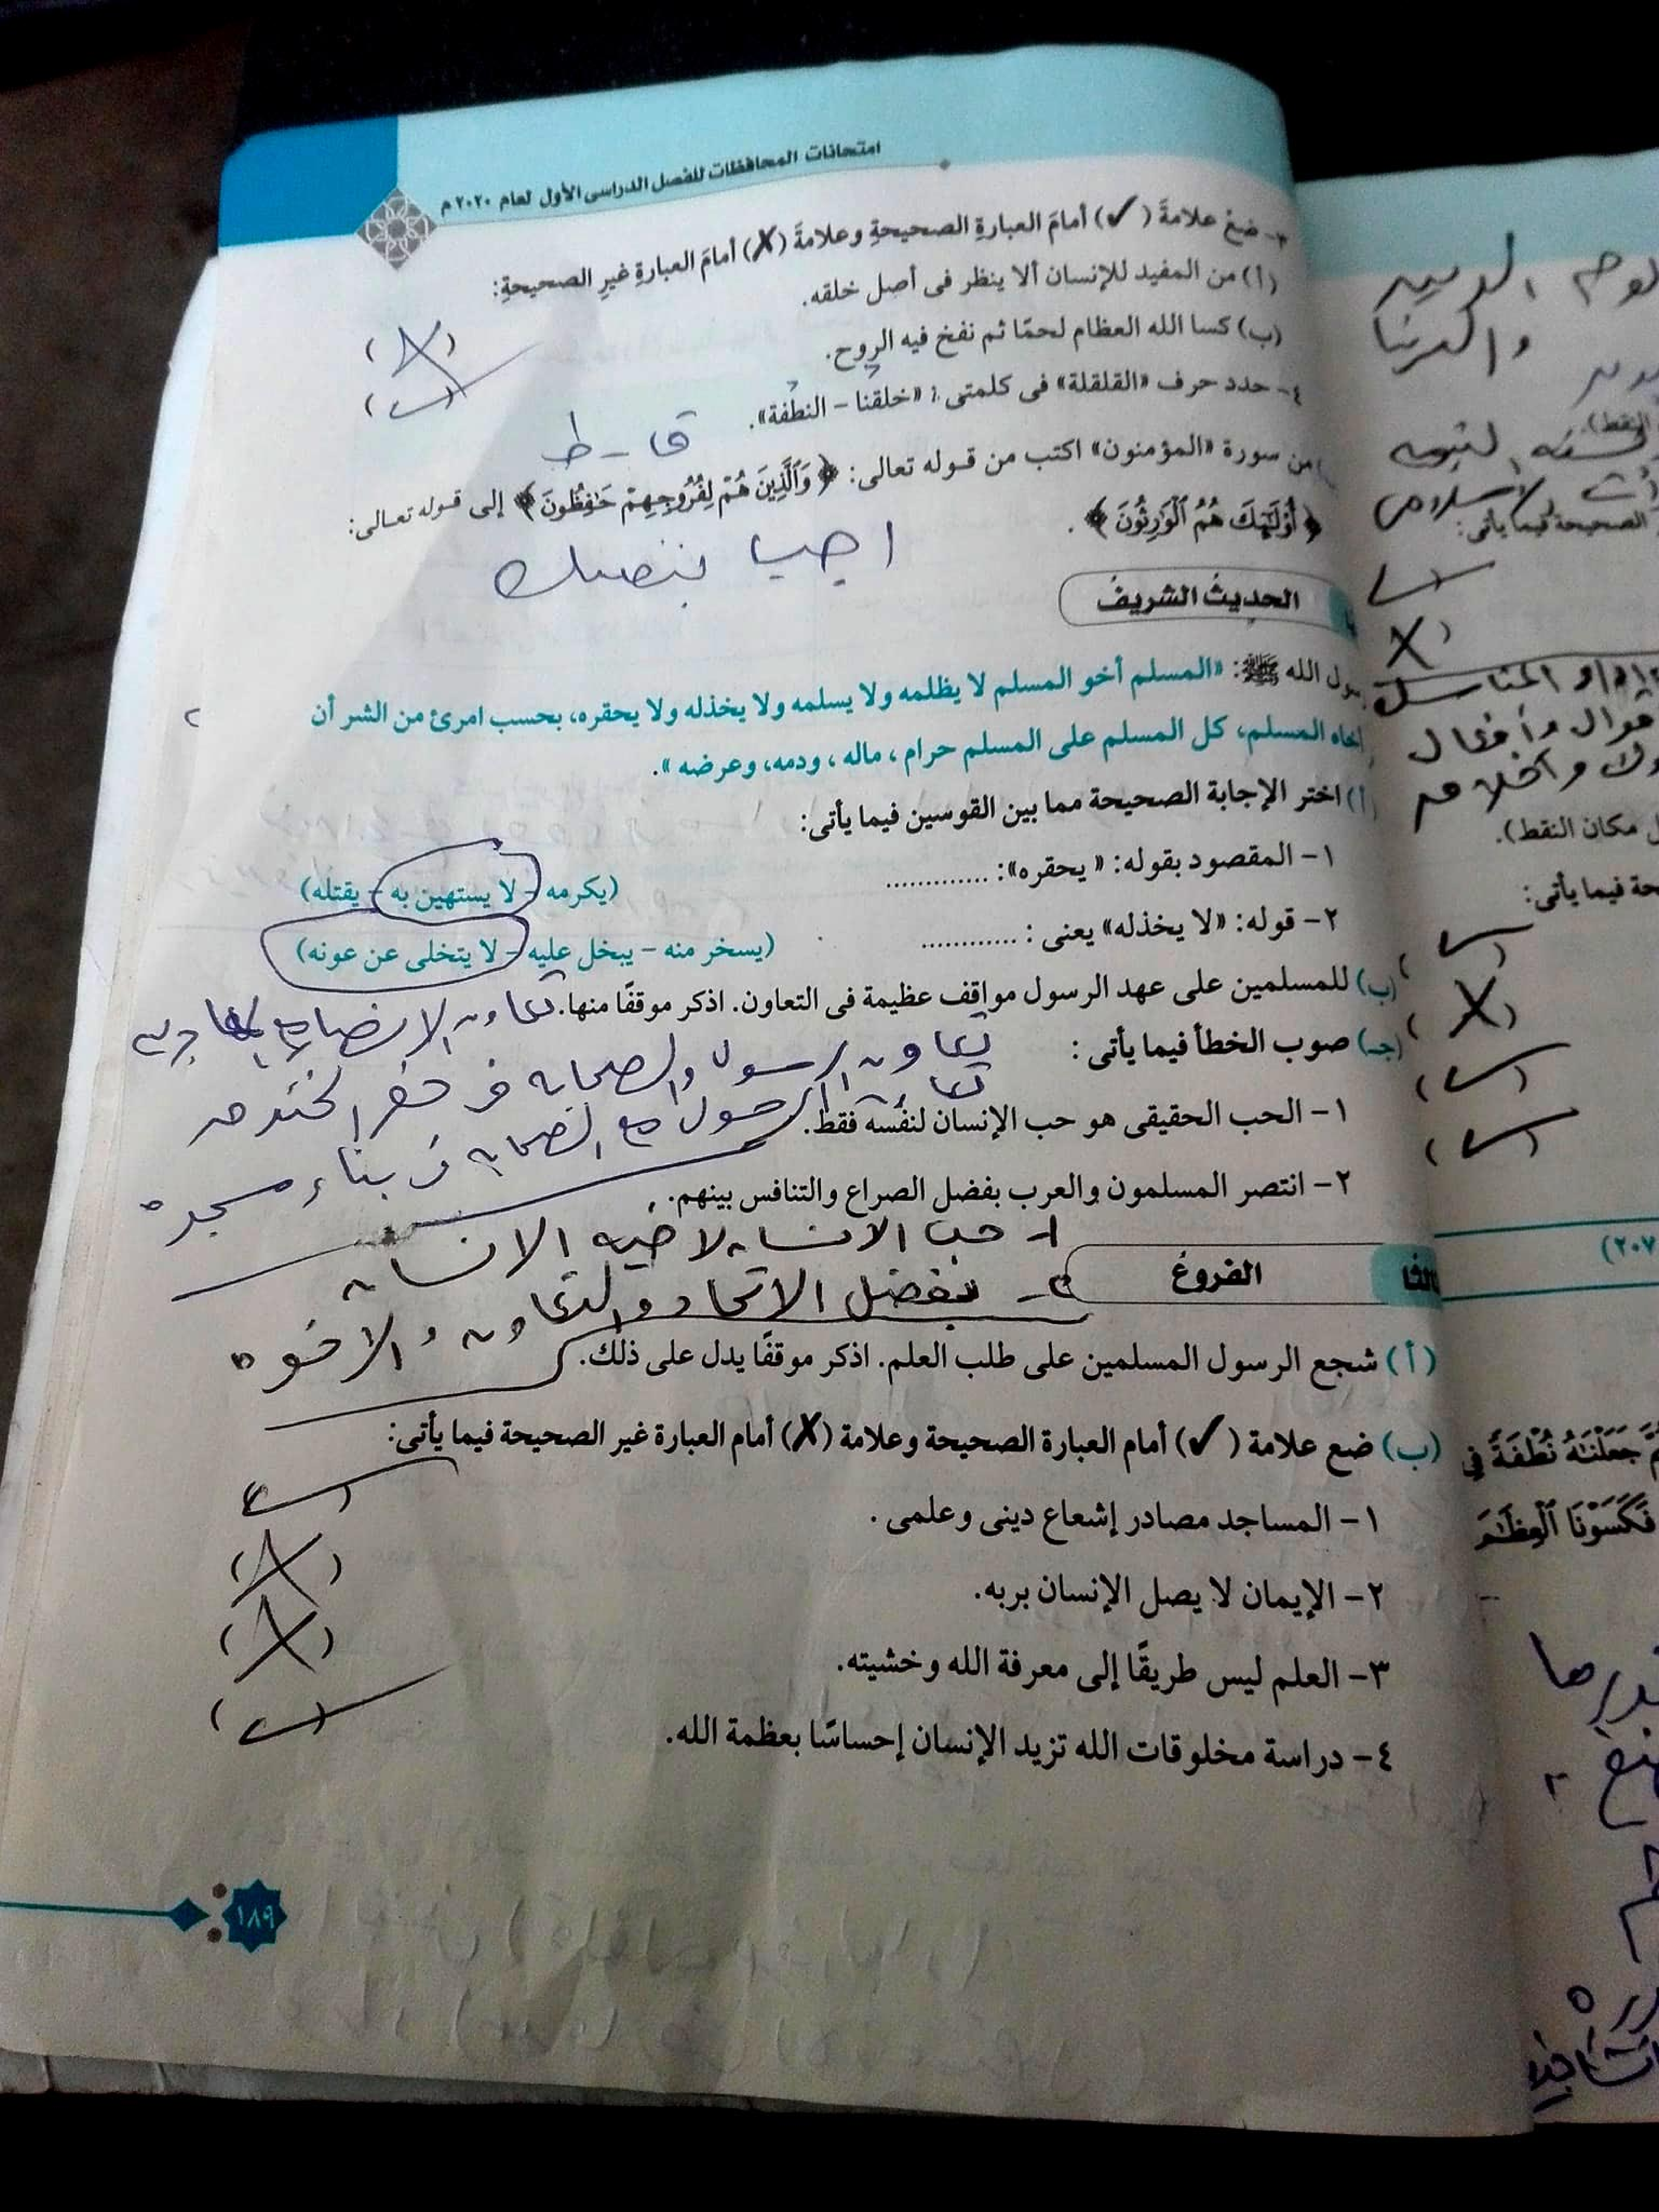 امتحانات المحافظات للفصل الدراسى الأول لعام ٢٠٢٠م
٣- ضعْ علامةَ (✓) أمامَ العبارةِ الصحيحةِ وعلامةَ (✗) أمامَ العبارةِ غيرِ الصحيحةِ:
(أ) من المفيد للإنسان ألا ينظر فى أصل خلقه.
(✗)
(ب) كسا الله العظام لحمًا ثم نفخ فيه الروح.
(✓)
٤- حدد حرف «القلقلة» فى كلمتى: «خلقنا - النطفة».
ق - ط
من سورة «المؤمنون» اكتب من قوله تعالى: ﴿ وَٱلَّذِينَ هُمْ لِفُرُوجِهِمْ حَٰفِظُونَ ﴾ إلى قوله تعالى:
﴿ أُوْلَٰٓئِكَ هُمُ ٱلْوَٰرِثُونَ ﴾ .
اجب بنفسك
الحديثُ الشريفُ
رسول الله ﷺ: «المسلم أخو المسلم لا يظلمه ولا يسلمه ولا يخذله ولا يحقره، بحسب امرئ من الشر أن
أخاه المسلم، كل المسلم على المسلم حرام، ماله، ودمه، وعرضه».
(أ) اختر الإجابة الصحيحة مما بين القوسين فيما يأتى:
١- المقصود بقوله: «يحقره»: .............
(يكرمه - لا يستهين به - يقتله)
٢- قوله: «لا يخذله» يعنى: .............
(يسخر منه - يبخل عليه - لا يتخلى عن عونه)
(ب) للمسلمين على عهد الرسول مواقف عظيمة فى التعاون. اذكر موقفًا منها.
تعاون الانصار مع
تعاون الرسول والصحابه فى حفر الخندق
تعاون الرسول مع الصحابه فى بناء مسجده
(جـ) صوب الخطأ فيما يأتى:
١- الحب الحقيقى هو حب الإنسان لنفسه فقط.
٢- انتصر المسلمون والعرب بفضل الصراع والتنافس بينهم.
١- حب الانسان لاخيه الانسان
٢- بفضل الاتحاد والتعاون والاخوه
ثالثًا
الفروعُ
(أ) شجع الرسول المسلمين على طلب العلم. اذكر موقفًا يدل على ذلك.
(ب) ضع علامة (✓) أمام العبارة الصحيحة وعلامة (✗) أمام العبارة غير الصحيحة فيما يأتى:
١- المساجد مصادر إشعاع دينى وعلمى.
(✓)
٢- الإيمان لا يصل الإنسان بربه.
(✗)
٣- العلم ليس طريقًا إلى معرفة الله وخشيته.
(✗)
٤- دراسة مخلوقات الله تزيد الإنسان إحساسًا بعظمة الله.
(✓)
١٨٩
النقط).
الصحيحة فيما يأتى:
مكان النقط).
فيما يأتى:
جَعَلْنَٰهُ نُطْفَةً فِي
فَكَسَوْنَا ٱلْعِظَٰمَ